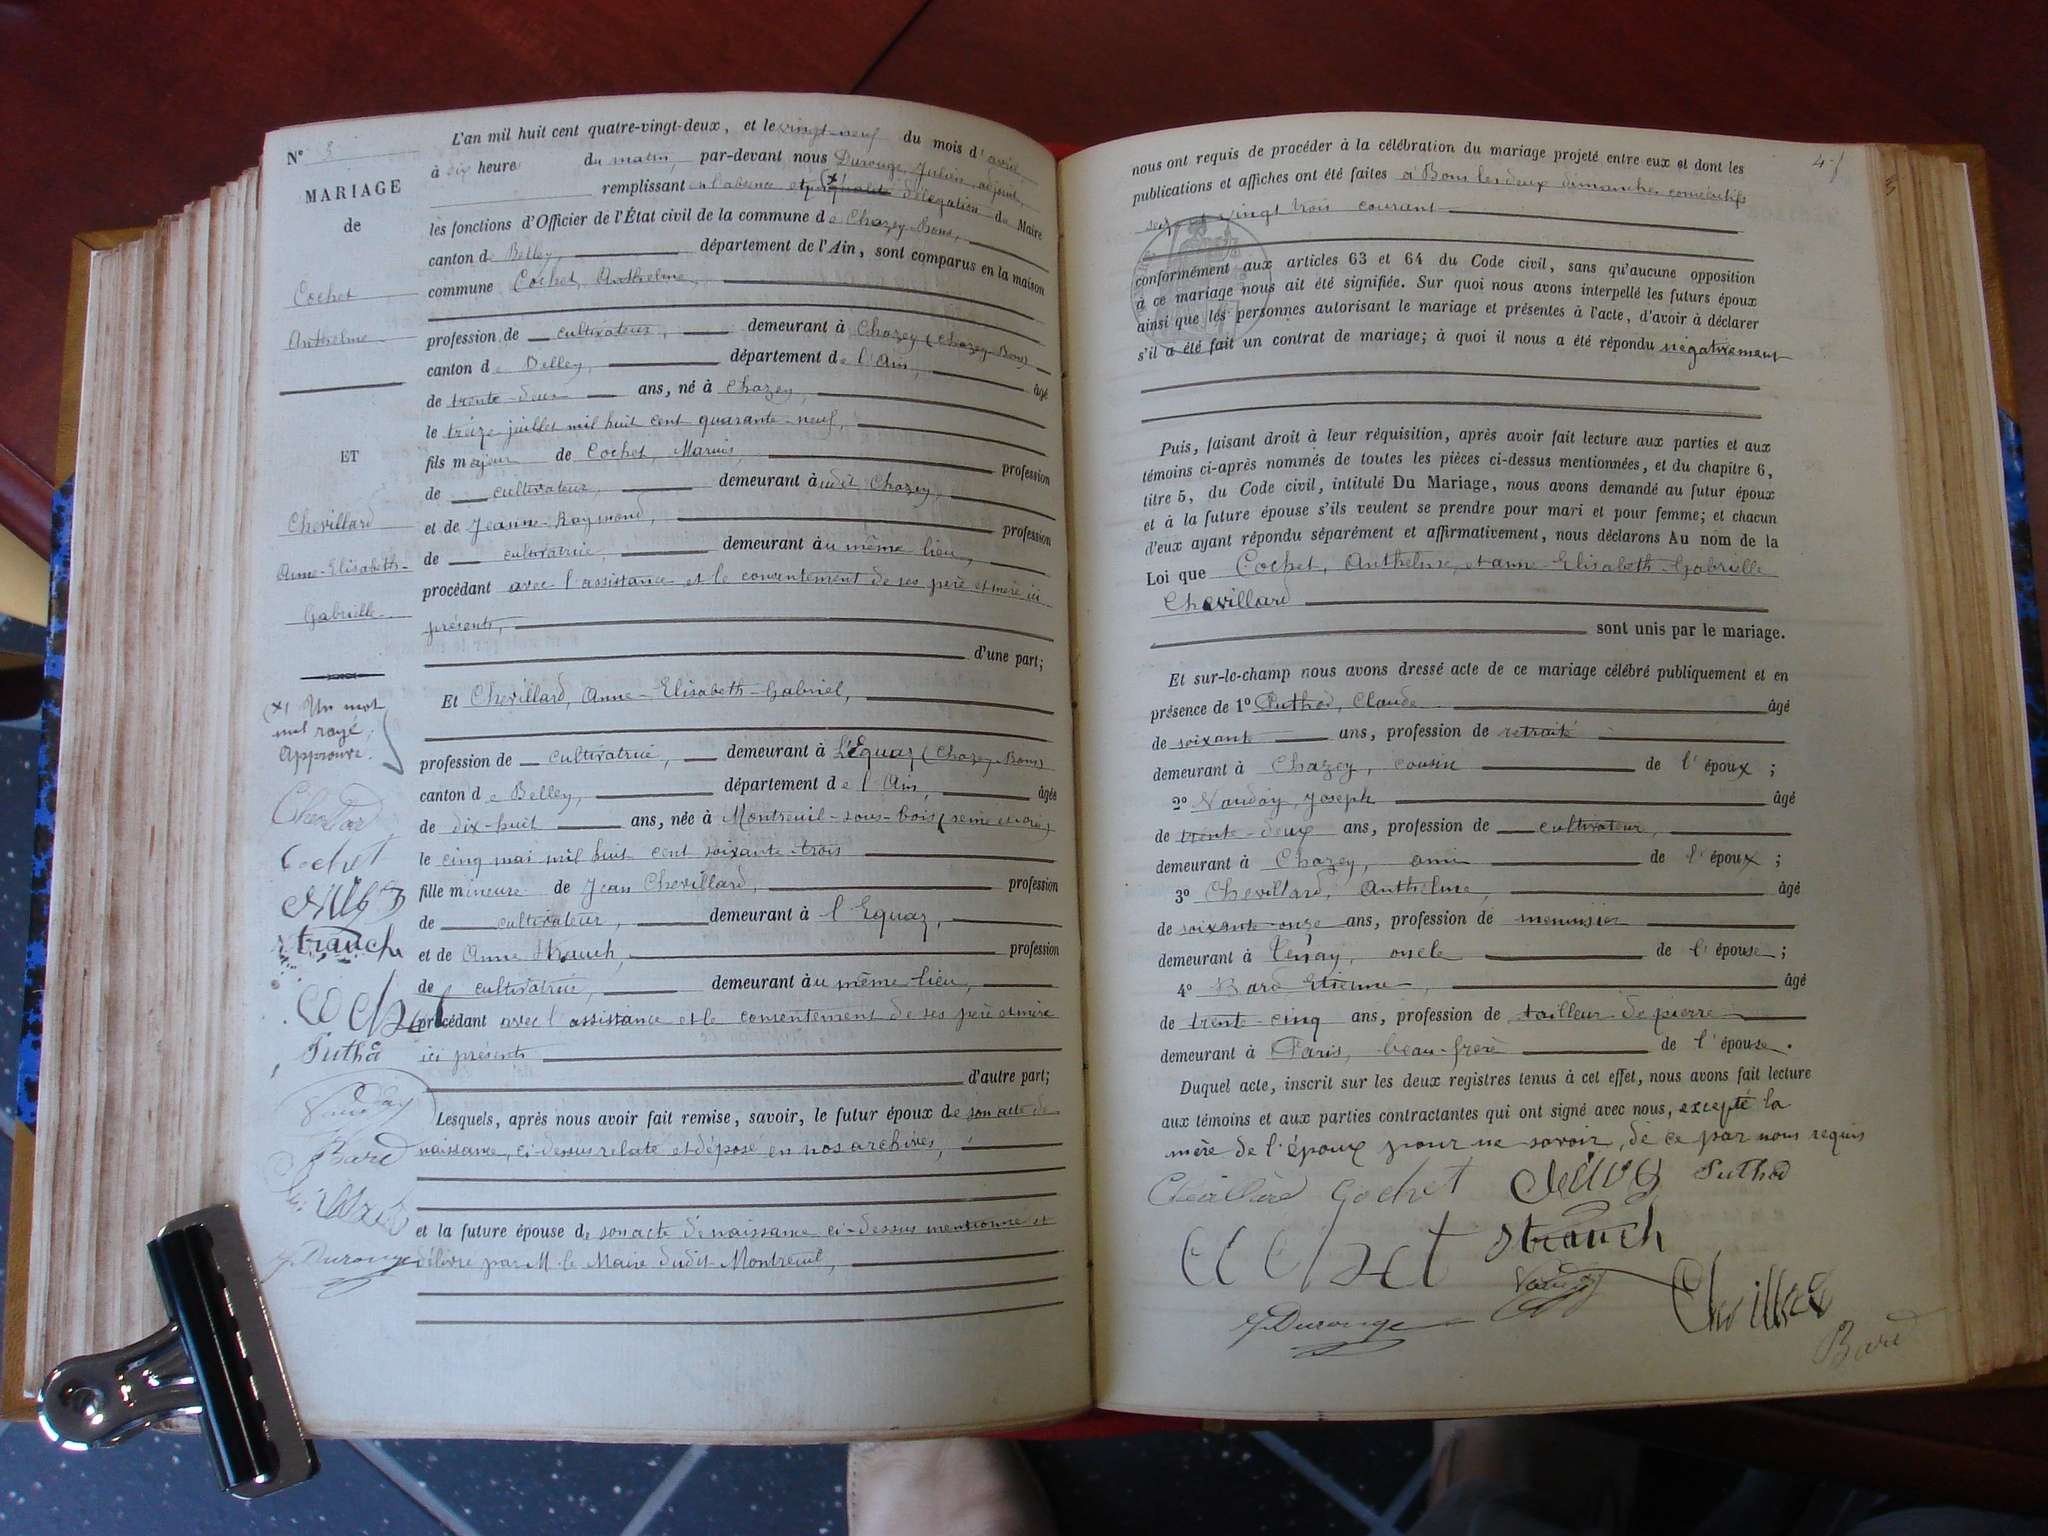 N° 3
MARIAGE
de
Cochet
Anthelme
ET
Chevillard
Anne-Elisabeth-
Gabrielle
(x) Un mot
nul rayé,
Approuvé.
Cochet
Strauch
Cochet
Puthod
Vauday
Bard
J. Durouge
L'an mil huit cent quatre-vingt-deux, et le vingt-neuf du mois d'avril,
à six heure du matin, par-devant nous Durouge, Julien, adjoint,
remplissant en l'absence et par (x) délégation du Maire
les fonctions d'Officier de l'État civil de la commune de Chazey-Bons,
canton de Belley, département de l'Ain, sont comparus en la maison
commune Cochet, Anthelme,
profession de cultivateur, demeurant à Chazey (Chazey-Bons)
canton de Belley, département de l'Ain, âgé
de trente-deux ans, né à Chazey,
le treize juillet mil huit cent quarante-neuf,
fils majeur de Cochet, Marius, profession
de cultivateur, demeurant à udit Chazey,
et de Jeanne-Raymond, profession
de cultivatrice, demeurant àu même lieu,
procédant avec l'assistance et le consentement de ses père et mère ici
présents,
d'une part;
Et Chevillard, Anne-Elisabeth-Gabriel,
profession de cultivatrice, demeurant à L'Equaz (Chazey-Bons)
canton de Belley, département de l'Ain, âgée
de dix-huit ans, née à Montreuil-sous-bois (seine
le cinq mai mil huit cent soixante-trois
fille mineure de Jean Chevillard, profession
de cultivateur, demeurant à l'Equaz,
et de Anne Strauch, profession
de cultivatrice, demeurant àu même lieu,
procédant avec l'assistance et le consentement de ses père et mère
ici présents
d'autre part;
Lesquels, après nous avoir fait remise, savoir, le futur époux de son acte de
naissance, ci-dessus relaté et déposé en nos archives,
et la future épouse de son acte de naissance ci-dessus mentionné et
délivré par M. le Maire dudit Montreuil,
4
nous ont requis de procéder à la célébration du mariage projeté entre eux et dont les
publications et affiches ont été faites à Bons les deux dimanches consécutifs
seize et vingt trois courant
conformément aux articles 63 et 64 du Code civil, sans qu'aucune opposition
à ce mariage nous ait été signifiée. Sur quoi nous avons interpellé les futurs époux
ainsi que les personnes autorisant le mariage et présentes à l'acte, d'avoir à déclarer
s'il a été fait un contrat de mariage; à quoi il nous a été répondu négativement
Puis, faisant droit à leur réquisition, après avoir fait lecture aux parties et aux
témoins ci-après nommés de toutes les pièces ci-dessus mentionnées, et du chapitre 6,
titre 5, du Code civil, intitulé Du Mariage, nous avons demandé au futur époux
et à la future épouse s'ils veulent se prendre pour mari et pour femme; et chacun
d'eux ayant répondu séparément et affirmativement, nous déclarons Au nom de la
Loi que Cochet, Anthelme, et anne-Elisabeth-Gabrielle
Chevillard
sont unis par le mariage.
Et sur-le-champ nous avons dressé acte de ce mariage célébré publiquement et en
présence de 1° Puthod, Claude âgé
de soixante ans, profession de retraité
demeurant à Chazey, cousin de l'époux;
2° Vauday, Joseph âgé
de trente-deux ans, profession de cultivateur,
demeurant à Chazey, ami de l'époux;
3° Chevillard, Anthelme, âgé
de soixante-onze ans, profession de menuisier
demeurant à Tenay, oncle de l'épouse;
4° Bard Etienne, âgé
de trente-cinq ans, profession de tailleur de pierre
demeurant à Paris, beau-frère de l'épouse.
Duquel acte, inscrit sur les deux registres tenus à cet effet, nous avons fait lecture
aux témoins et aux parties contractantes qui ont signé avec nous, excepté la
mère de l'époux pour ne savoir, de ce par nous requis
Chevillard Cochet Puthod
Cochet Strauch
Vauday Chevillard
J. Durouge Bard